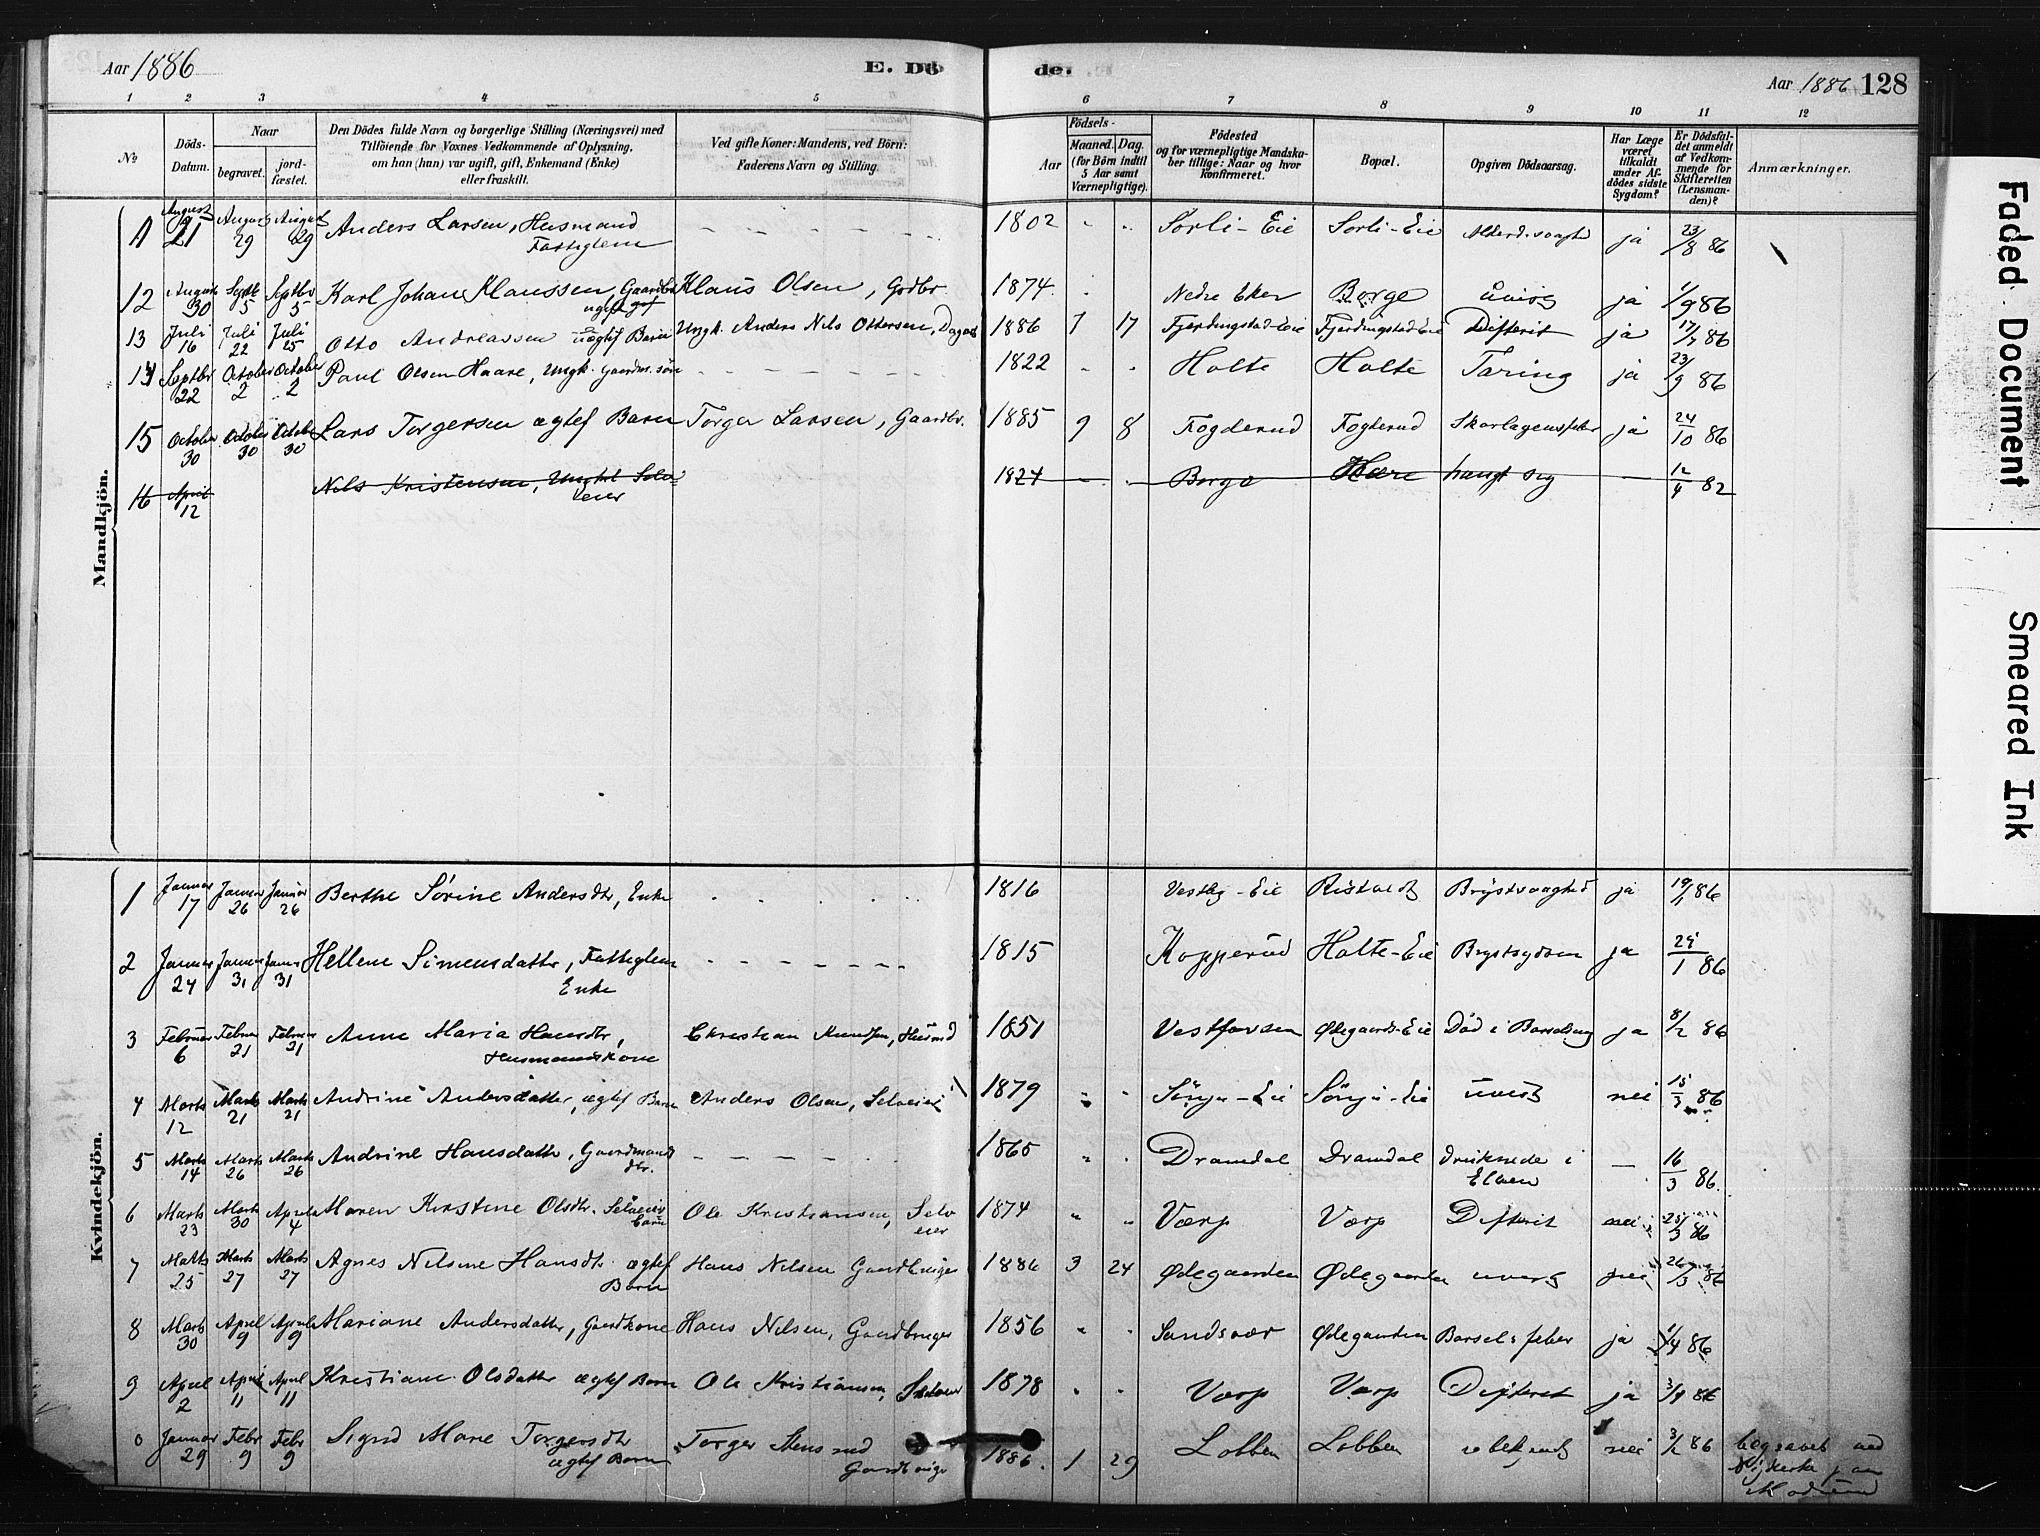 Aar 1886
E. Dö
de.
Aar 1886 128
1 2 3 4 5 6 7 8 9 10 11 12
No
Döds-
Datum.
Naar
begravet.
jord-
fæstet.
Den Dödes fulde Navn og borgerlige Stilling (Næringsvei) med
Tilföiende for Voxnes Vedkommende af Oplysning,
om han (hun) var ugift, gift, Enkemand (Enke)
eller fraskilt.
Ved gifte Koner: Mandens, ved Börn:
Faderens Navn og Stilling.
Födsels-
Aar
Maaned.
Dag.
(for Börn indtil
5 Aar samt
Værnepligtige).
Födested
og for værnepligtige Mandska-
ber tillige: Naar og hvor
Konfirmeret.
Bopæl.
Opgiven Dödsaarsag.
Har Læge
været
tilkaldt
under Af-
dödes sidste
Sygdom?
Er Dödsfal-
det anmeldt
af Vedkom-
mende for
Skifteretten
(Lensman-
den)?
Anmærkninger.
Mandkjön.
August 21 August 29 August 29 Anders Larsen, Husmand 1802 Sorli-Eie Sorli-Eie ja 23/8 86
Fattiglem
12 August 30 Septb 5 Septbr 5 Karl Johan Klaussen Gaardbr Klaus Olsen, Grdbr. 1874 Nedre Eker Borge ja 1/9 86
13 Juli 16 Juli 22 Juli 25 Otto Andreassen uægtef Barn Ungk. Anders Nils Ottersen, 1886 17 Fjerdingstad-Eie Fjerdingstad-Eie Difterit ja 17/7 86
14 Septbr 22 October 2 October 2 Paul Olsen Haare, Ungk. Gaardm. søn 1822 Holte Holte Tæring ja 23/9 86
15 October 30 October 30 Lars Torgersen ægtef Barn Torger Larsen, Gaardbr. 1885 9 8 Fogderud Fogderud Skarlagensfeber ja 24/10 86
16 April 12 Nils Kristensen, Ungkl Selv- 1824 Borge hængt sig 12/4 82
eier
Kvindekjön.
1 Januar 17 Januar 26 Januar 26 Berthe Sörine Andersdtr, Enke 1816 Vestby-Eie ja 19/1 86
2 Januar 24 Januar 31 Januar 31 Hellene Simensdatter, Fattiglem 1815 Kopperud Holte-Eie Brystsygdom ja 25/1 86
Enke
3 Februar 6 Februar 21 Februar 21 Anne Maria Hansdtr, Christian Knudsen, Husmd 1851 Vestfossen Ødegaards-Eie Död i Barselseng ja 8/2 86
Husmandskone
4 Marts 12 Marts 21 Marts 21 Andrine Andersdatter, ægtef Barn Anders Olsen, Selveier 1879 uvist nei 15/3 86
5 Marts 14 Marts 26 Marts 26 Andrine Hansdatter, Gaardmands 1865 Dramdal Dramdal druknede i 16/3 86
dtr. Elven
6 Marts 23 Marts 30 April 4 Maren Kirstine Olsdtr. Selveier Ole Kristiansen, Selv 1874 Værp Værp Difterit nei 25/3 86
Barn eier
7 Marts 25 Marts 27 Marts 27 Agnes Nilsine Hansdtr. ægtef Hans Nilsen Gaardbruger 1886 3 24 Ødegaarden Ødegaarden uvist nei 26/3 86
Barn
8 Marts 30 April 9 April 9 Mariane Andersdatter, Gaardkone Hans Nilsen, Gaardbruger 1856 Sandsvær Ødegaarden Barselsfeber ja 1/4 86
9 April 2 April 11 April 11 Kristiane Olsdatter ægtef Barn Ole Kristiansen, Selveier 1878 Værp Værp Difterit ja 3/4 86
0 Januar 29 Febr 9 Febr 9 Sigrid Marie Torgersdtr Torger Stensrud 1886. 1 29 Lobben Lobben ubekjendt nei 3/2 86 begravet ved
ægtef Barn Gaardbruger
Nykirke paa
Modum
Faded Document
Smeared Ink